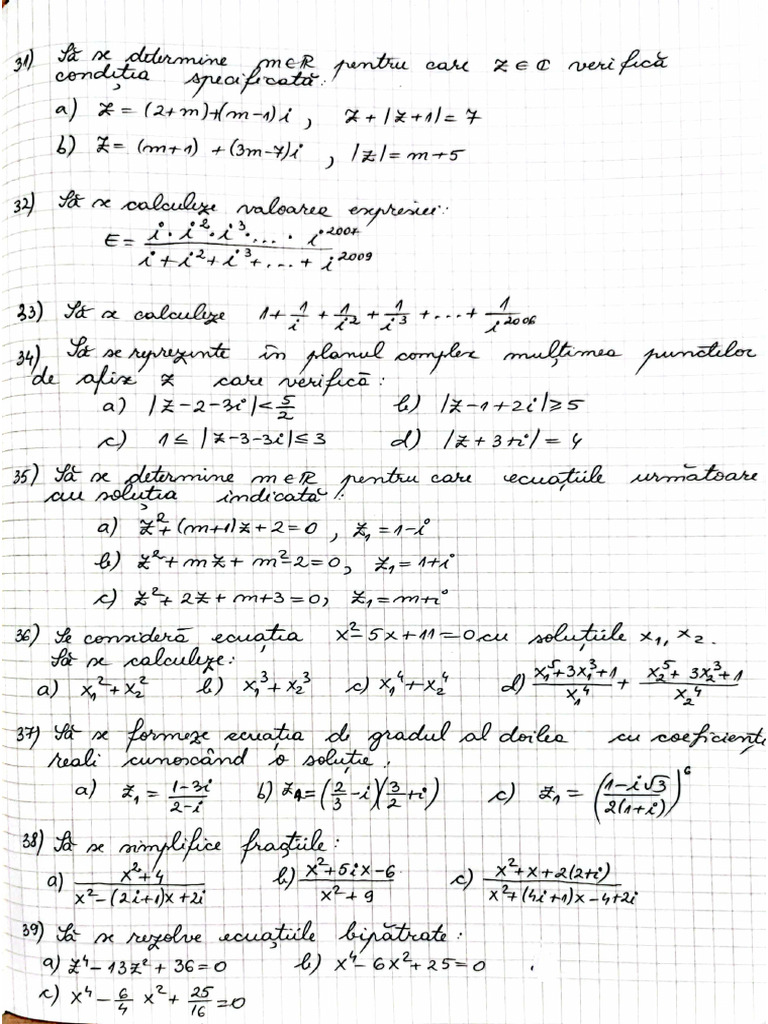 31) Să se determine m∈ℝ pentru care z∈ℂ verifică
condiția specificată:
a) z = (2+m)+(m-1)i , z+|z+1|= 7
b) z= (m+1) +(3m-7)i , |z|= m+5
32) Să se calculeze valoarea expresiei:
E = (i · i² · i³ · ... · i²⁰⁰⁷) / (i + i² + i³ + ... + i²⁰⁰⁹)
33) Să se calculeze 1 + 1/i + 1/i² + 1/i³ + ... + 1/i²⁰⁰⁶
34) Să se reprezinte în planul complex mulțimea punctelor
de afix z care verifică:
a) |z-2-3i|< 5/2 b) |z-1+2i|⩾5
c) 1≤ |z-3-3i|≤3 d) |z+3+i| = 4
35) Să se determine m∈ℝ pentru care ecuațiile următoare
au soluția indicată:
a) z²+(m+1)z+2=0 , z₁=1-i
b) z²+mz+m²-2=0, z₁=1+i
c) z²+2z+m+3=0; z₁=m+i
36) Se consideră ecuația x²-5x+11=0 cu soluțiile x₁, x₂.
Să se calculeze:
a) x₁²+x₂² b) x₁³+x₂³ c) x₁⁴+x₂⁴ d) (x₁⁵+3x₁³+1)/x₁⁴ + (x₂⁵+3x₂³+1)/x₂⁴
37) Să se formeze ecuația de gradul al doilea cu coeficienți
reali cunoscând o soluție:
a) z₁ = (1-3i)/(2-i) b) z₁=(2/3 -i)(3/2 +i) c) z₁ = ((1-i√3)/(2(1+i)))⁶
38) Să se simplifice fracțiile:
a) (x²+4)/(x²-(2i+1)x+2i) b) (x²+5ix-6)/(x²+9) c) (x²+x+2(2+i))/(x²+(4i+1)x-4+2i)
39) Să se rezolve ecuațiile bipătrate:
a) z⁴-13z²+36=0 b) x⁴-6x²+25=0
c) x⁴- 6/4 x²+ 25/16 =0